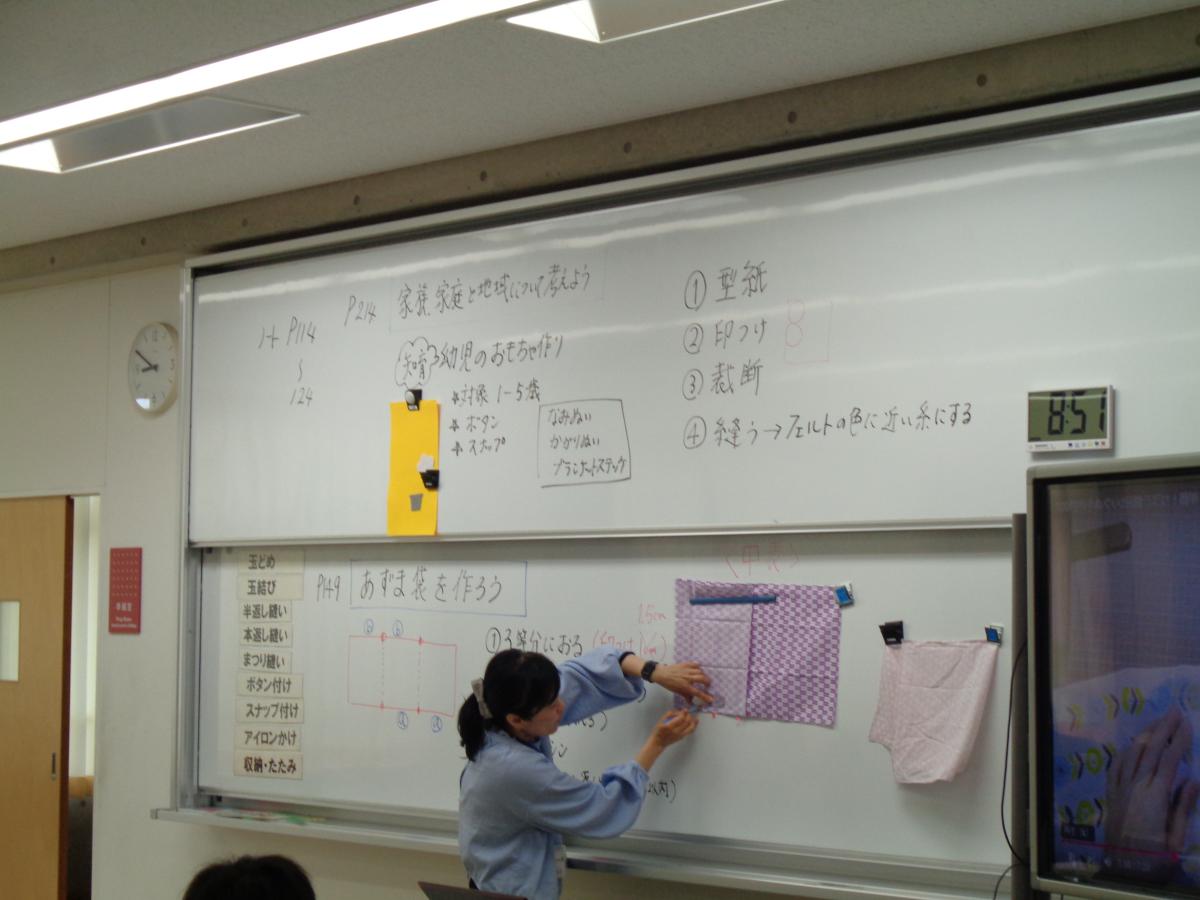 P214 家族、家庭と地域について考えよう
P114
〜
124
知育 幼児のおもちゃ作り
対象 1〜5歳
ボタン
スナップ
なみぬい
かがりぬい
ブランケットステッチ
① 型紙
② 印つけ
③ 裁断
④ 縫う→フェルトの色に近い糸にする
8:51
玉どめ
玉結び
半返し縫い
本返し縫い
まつり縫い
ボタン付け
スナップ付け
アイロンかけ
収納・たたみ
P149 あずま袋を作ろう
① 3等分におる
1.5cm